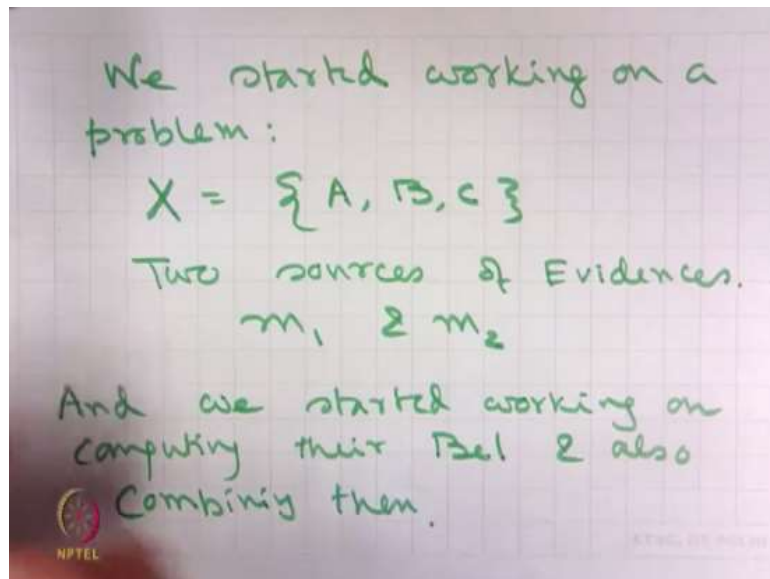 We started working on a
problem:
X = { A, B, C }
Two sources of Evidences.
m₁ & m₂
And we started working on
computing their Bel & also
Combining them.
NPTEL